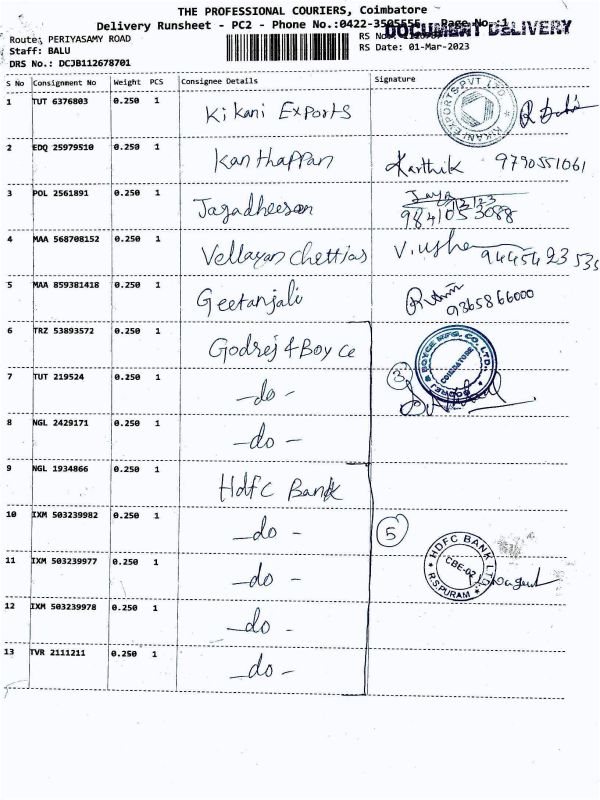 THE PROFESSIONAL COURIERS, Coimbatore
Delivery Runsheet - PC2 - Phone No.:0422-3505555 Page No :1
DOCUMENT DELIVERY
Route: PERIYASAMY ROAD
Staff: BALU
RS Date: 01-Mar-2023
DRS No.: DCJB112678701
S No Consignment No Weight PCS Consignee Details Signature
1 TUT 6376803 0.250 1 Kikani Exports
2 EDQ 25979510 0.250 1 Kanthappan Karthik 9790551061
3 POL 2561891 0.250 1 Jagadheesan Jaya
9841053088
4 MAA 568708152 0.250 1 Vellayan Chettiar V. usha 9445423535
5 MAA 859381418 0.250 1 Geetanjali 9365866000
6 TRZ 53893572 0.250 1 Godrej & Boyce
GODREJ & BOYCE MFG. CO. LTD.
COIMBATORE
7 TUT 219524 0.250 1 -do- 3
8 NGL 2429171 0.250 1 -do-
9 NGL 1934866 0.250 1 HdfC Bank
10 IXM 503239982 0.250 1 -do- 5
11 IXM 503239977 0.250 1 -do-
HDFC BANK LTD
CBE-02
R.S.PURAM
12 IXM 503239978 0.250 1 -do-
13 TVR 2111211 0.250 1 -do-